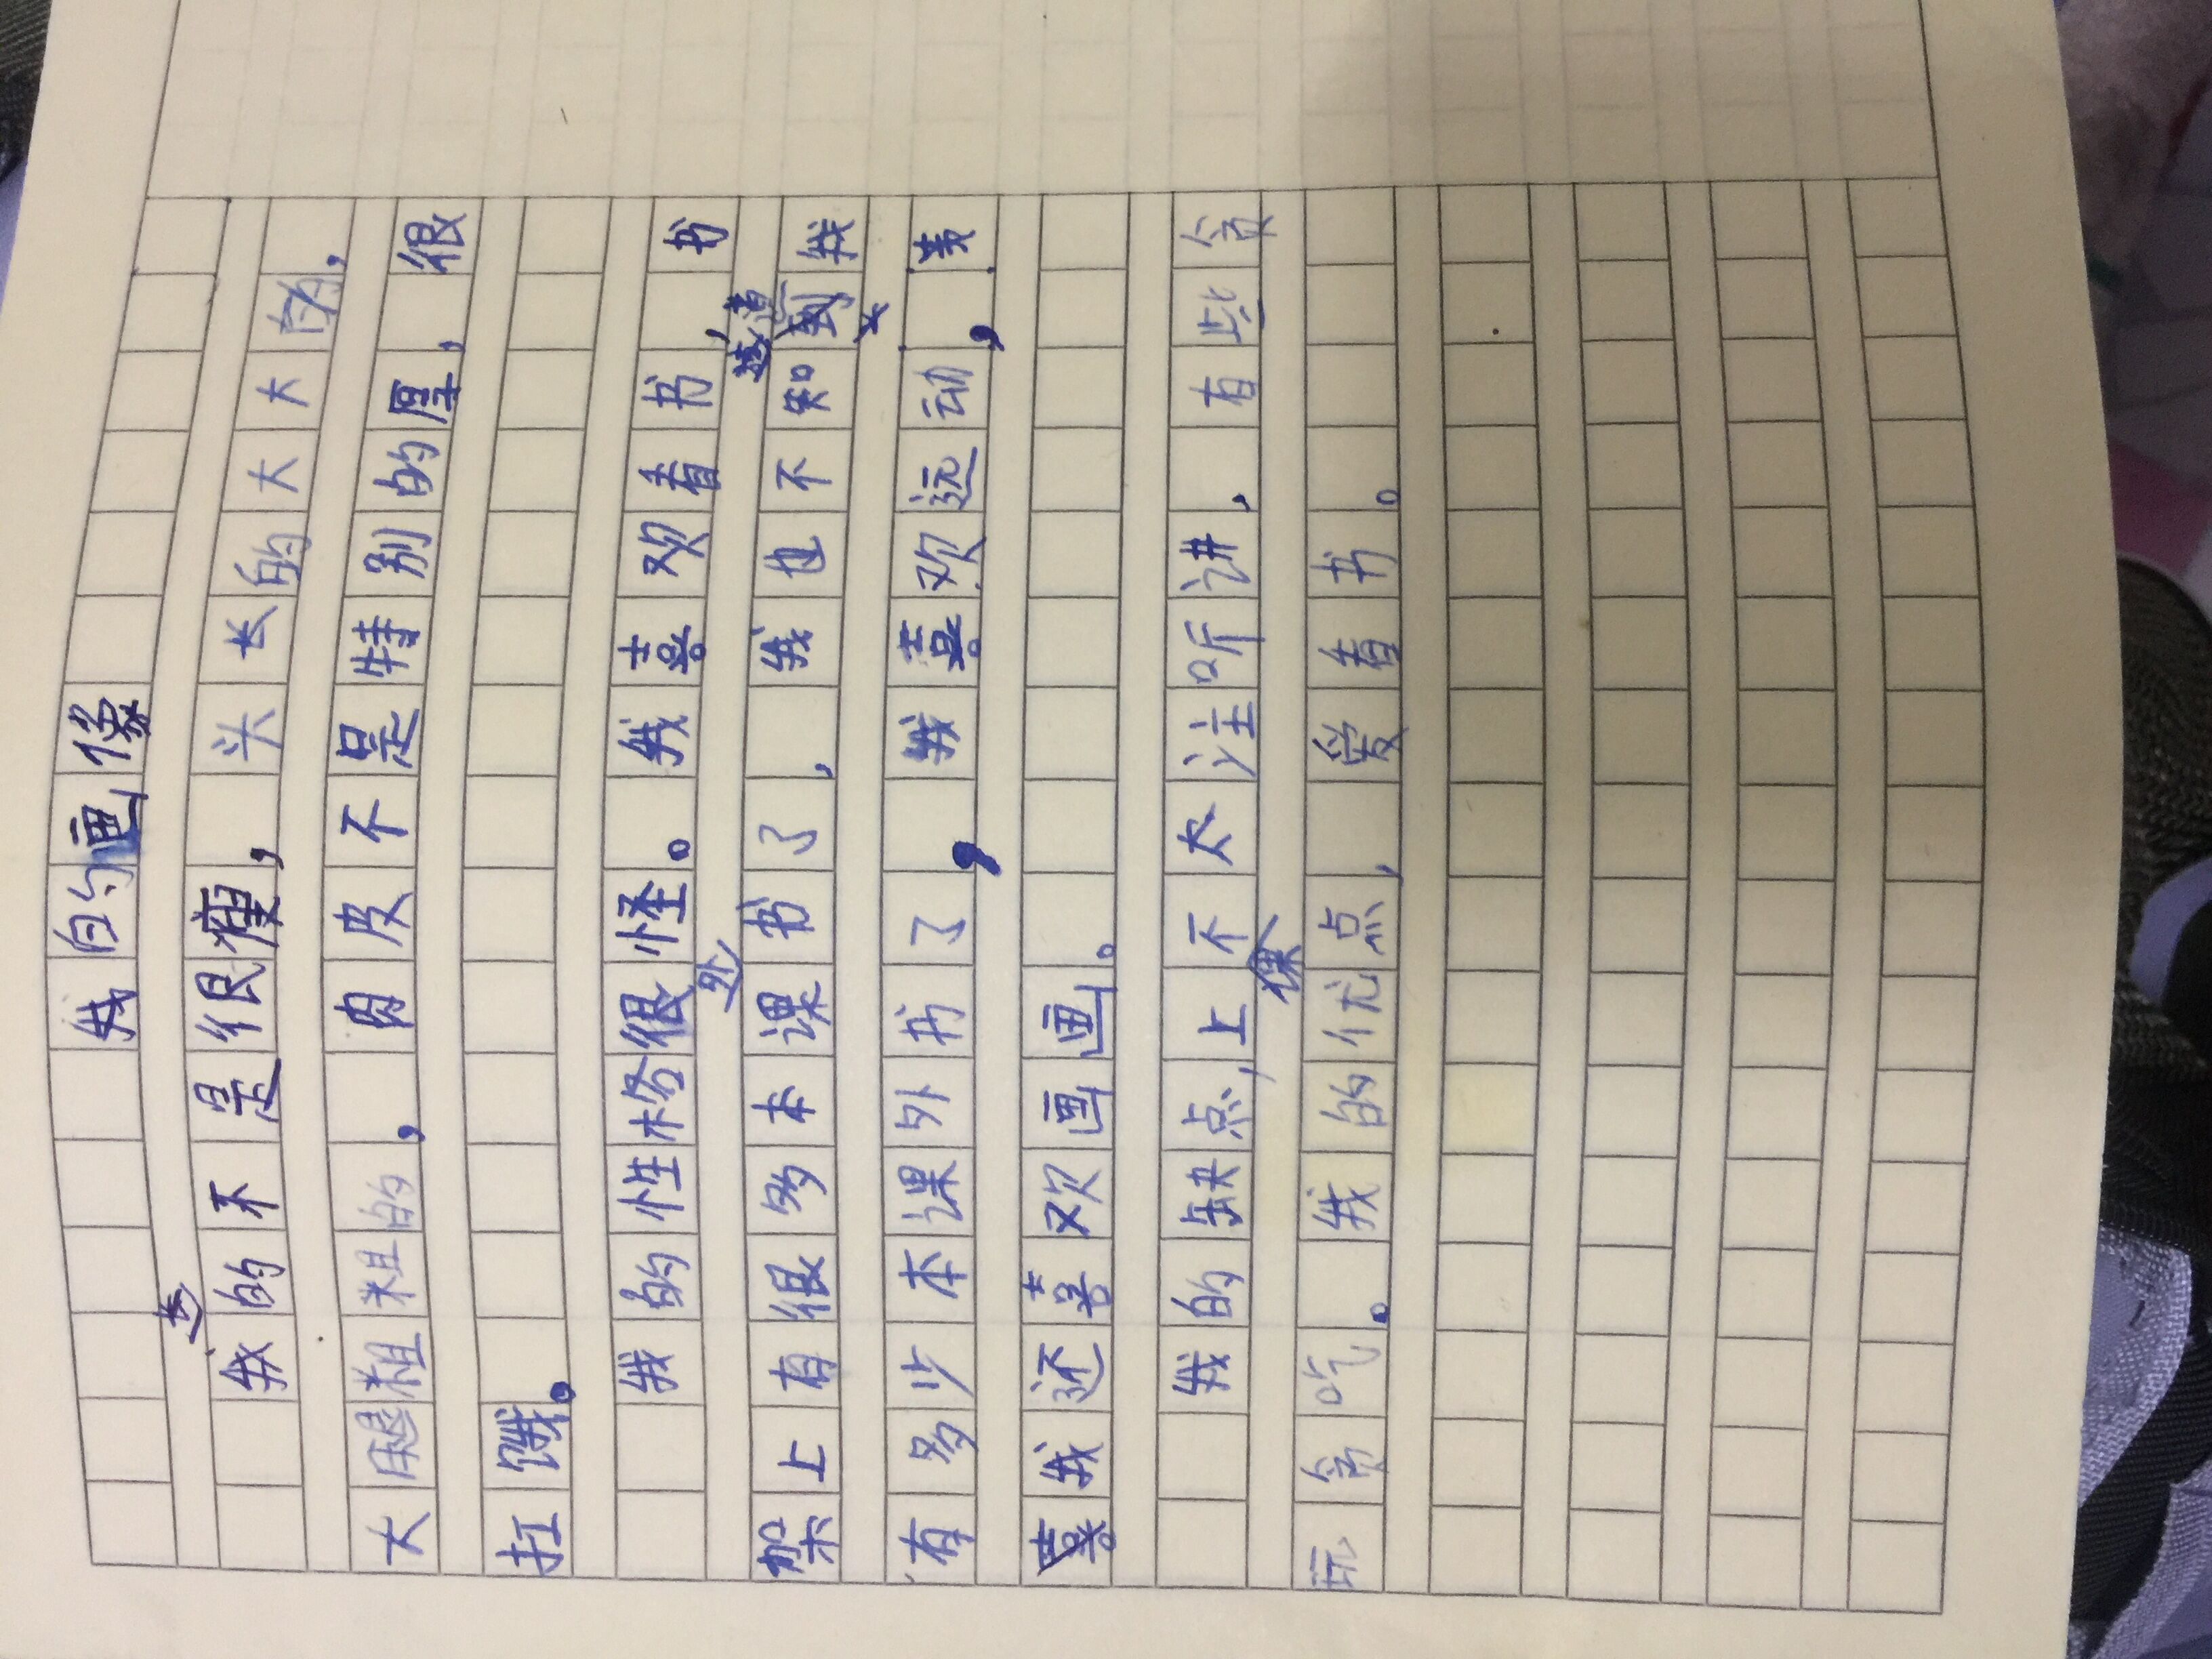 我的画像
我长的不是很瘦，头长的大大的，
大腿粗粗的，肉皮不是特别的厚，很
拉饿。
我的性格很怪。我喜欢看书，书
架上有很多本课外书了，我也不知道我
有多少本课外书了，我喜欢远动，
我还喜欢画画。
我的缺点，上课不太注听讲，有些贪
玩贪吃。我的优点，爱看书。